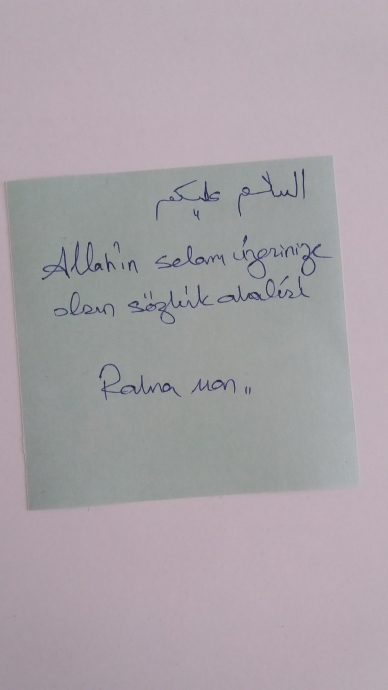 السلام عليكم
Allah'ın selamı üzerinize
olsun sözlük ahalisi
Rahna man..